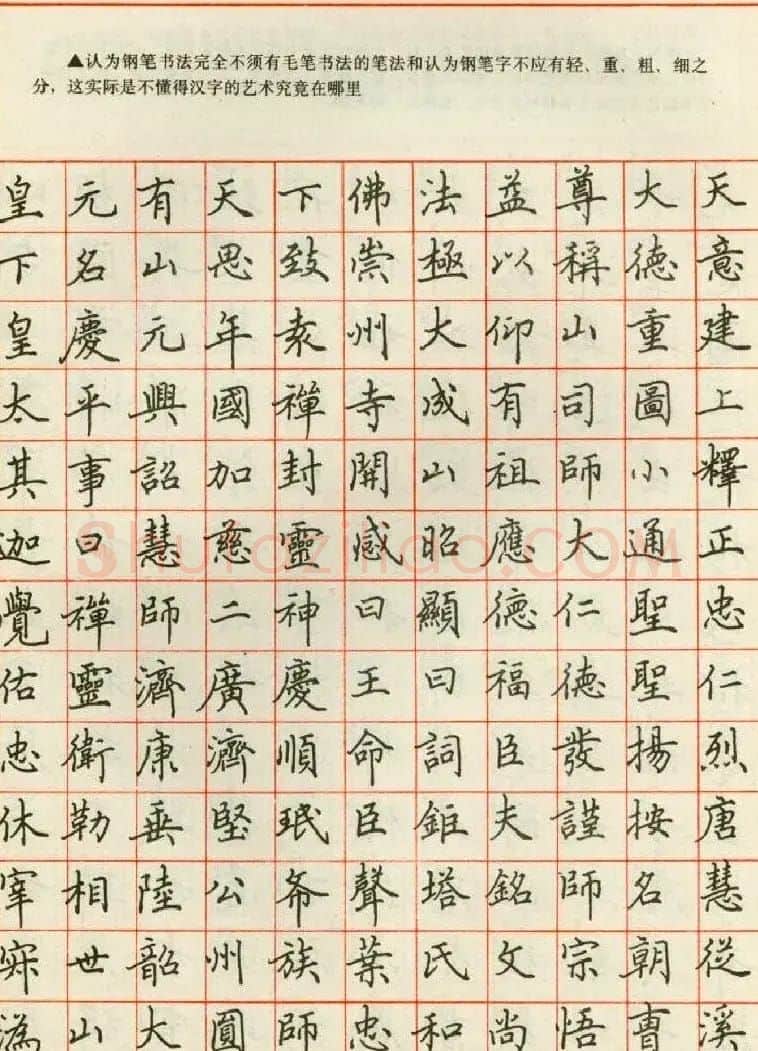 ▲认为钢笔书法完全不须有毛笔书法的笔法和认为钢笔字不应有轻、重、粗、细之
分，这实际是不懂得汉字的艺术究竟在哪里
皇元有天下佛法益尊大天
下名山思致崇極以稱德意
皇慶元年袁州大仰山重建
太平興國禪寺成有司圖上
其事詔加封開山祖師小釋
迦曰慧慈靈感昭應大通正
覺禪師二神曰顯德仁聖忠
佑靈濟廣慶王曰福德聖仁
忠衛康濟順命詞臣發揚烈
休勒垂堅珉臣鉅夫謹按唐
宰相陸公希聲塔銘師名慧
寂世韶州族葉氏文宗朝從
溈山大圓師忠和尚悟曹溪
Shufaziliao.COM